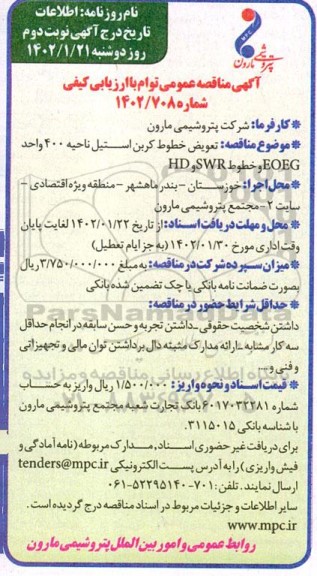 نام روزنامه: اطلاعات
تاریخ درج آگهی نوبت دوم
روز دوشنبه ۱۴۰۲/۱/۲۱
MPC
پتروشیمی مارون
آگهی مناقصه عمومی توام با ارزیابی کیفی
شماره ۱۴۰۲/۷۰۸
* کارفرما: شرکت پتروشیمی مارون
* موضوع مناقصه: تعویض خطوط کربن استیل ناحیه ۴۰۰ واحد
EOEG و خطوط SWR و HD
* محل اجرا: خوزستان – بندر ماهشهر – منطقه ویژه اقتصادی –
سایت ۲ – مجتمع پتروشیمی مارون
* محل و مهلت دریافت اسناد: از تاریخ ۱۴۰۲/۰۱/۲۲ لغایت پایان
وقت اداری مورخ ۱۴۰۲/۰۱/۳۰ (به جز ایام تعطیل)
* میزان سپرده شرکت در مناقصه: به مبلغ ۳/۷۵۰/۰۰۰/۰۰۰ ریال
بصورت ضمانت نامه بانکی یا چک تضمین شده بانکی
* حداقل شرایط حضور در مناقصه:
داشتن شخصیت حقوقی ـ داشتن تجربه و حسن سابقه در انجام حداقل
سه کار مشابه ـ ارائه مدارک مثبته دال بر داشتن توان مالی و تجهیزاتی
و فنی و...
* قیمت اسناد و نحوه واریز: ۱/۵۰۰/۰۰۰ ریال واریز به حساب
شماره ۶۰۱۷۰۳۲۲۸۱ بانک تجارت شعبه مجتمع پتروشیمی مارون
با شناسه بانکی ۳۱۱۵۰۱۵.
برای دریافت غیر حضوری اسناد، مدارک مربوطه (نامه آمادگی و
فیش واریزی) را به آدرس پست الکترونیکی tenders@mpc.ir
ارسال نمایند. تلفن: ۷۰۱-۵۲۲۹۵۱۴۰-۰۶۱
سایر اطلاعات و جزئیات مربوط در اسناد مناقصه درج گردیده است.
www.mpc.ir
روابط عمومی و امور بین الملل پتروشیمی مارون